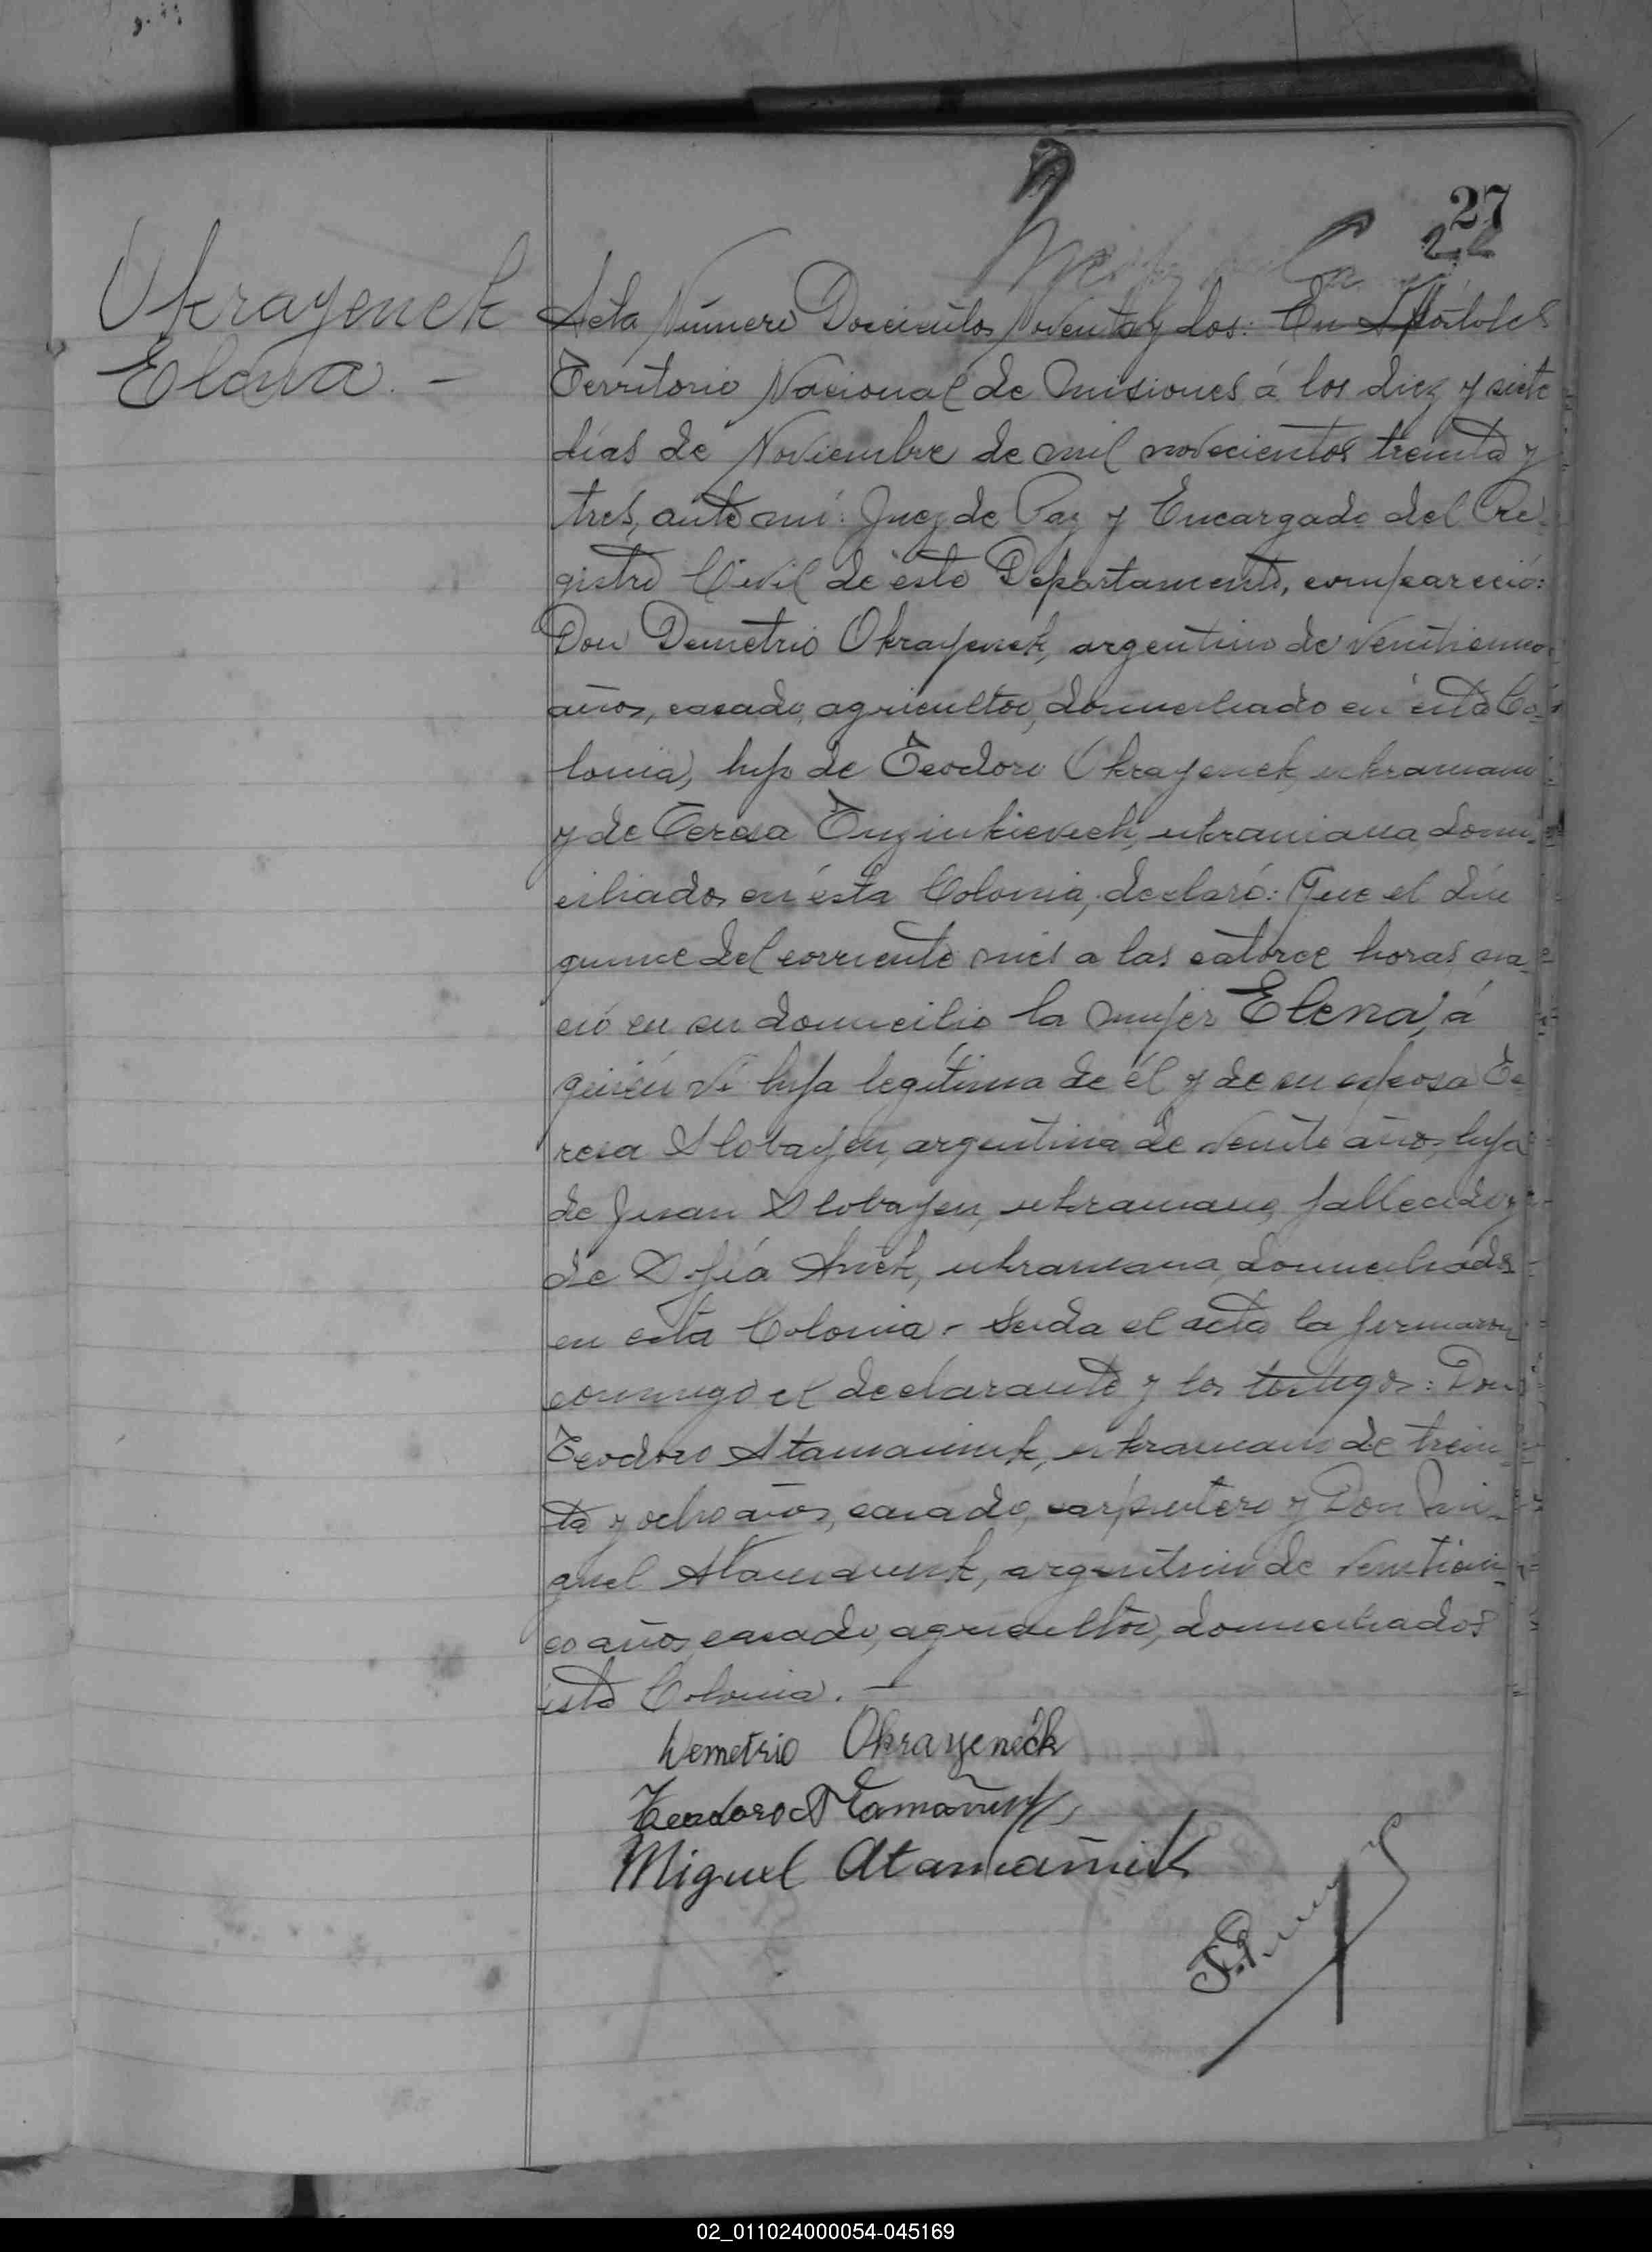 27
22
Okrayenek
Elena. —
Acta Número Doscientos Noventa y dos: En Apóstoles
Territorio Nacional de Misiones á los diez y siete
días de Noviembre de mil novecientos treinta y
tres, ante mí: Juez de Paz y Encargado del Re-
gistro Civil de este Departamento, compareció:
Don Demetrio Okrayenek, argentino de veintiuno
años, casado, agricultor, domiciliado en esta Co-
lonia, hijo de Teodoro Okrayenek, ukraniano
y de Teresa ukraniana, domi-
ciliados en ésta Colonia, declaró: Que el día
quince del corriente mes a las catorce horas na-
ció en su domicilio la mujer Elena, á
quien vi hija legítima de él y de su esposa Te-
resa Slobayen, argentina de veinte años, hija
de Juan Slobayen, ukraniano, fallecido y
de Sofía ukraniana, domiciliada
en esta Colonia. - Leida el acta la firmaron
conmigo el declarante y los testigos: Don
Teodoro Atamañuk, ukraniano de trein-
ta y ocho años, casado, carpintero y Don Mi-
guel Atamañuk, argentino de veinticin-
co años, casado, agricultor, domiciliados
esta Colonia. —
Demetrio Okrayeneck
Teodoro Atamañuk
Miguel Atamañuk
02_011024000054-045169